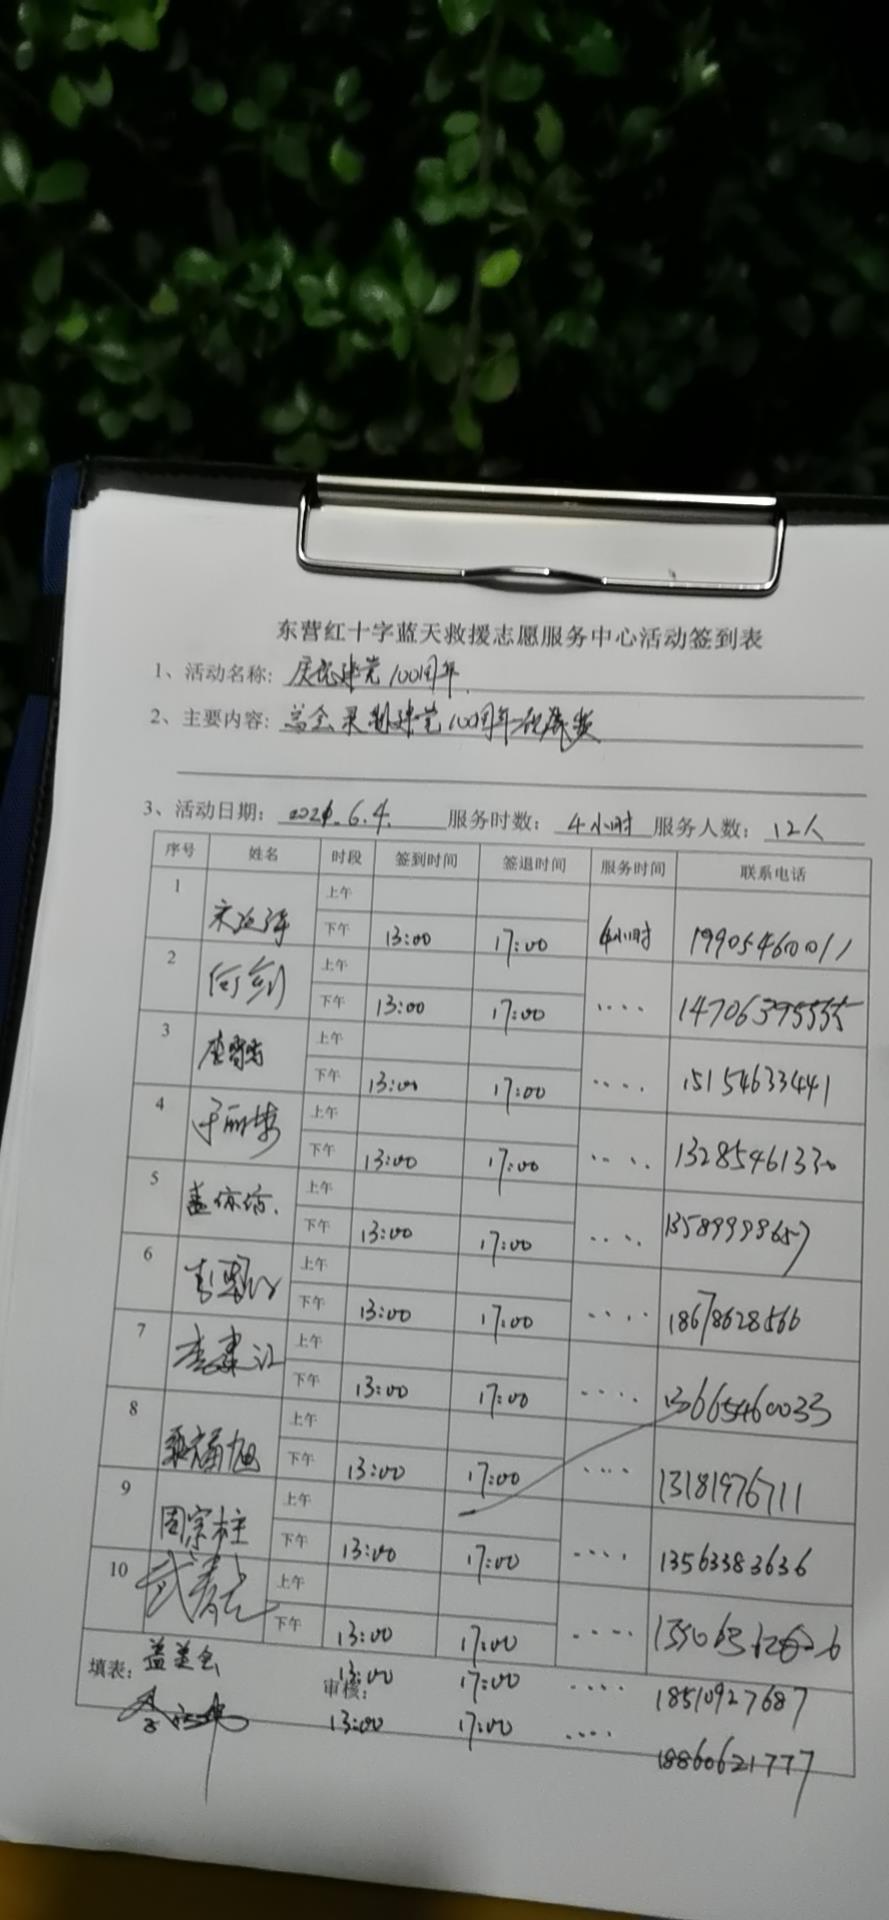 东营红十字蓝天救援志愿服务中心活动签到表
1、活动名称: 庆祝建党100周年
2、主要内容: 录制建党100周年
3、活动日期: 2021.6.4. 服务时数: 4小时 服务人数: 12人
序号 姓名 时段 签到时间 签退时间 服务时间 联系电话
1 上午
下午 13:00 17:00 4小时 19905460011
2 何剑 上午
下午 13:00 17:00 ···· 14706395555
3 上午
下午 13:00 17:00 ···· 15154633441
4 上午
下午 13:00 17:00 ···· 13285461330
5 上午
下午 13:00 17:00 ····
6 上午
下午 13:00 17:00 ···· 18678628566
7 李建江 上午
下午 13:00 17:00 ···· 13665460033
8 上午
下午 13:00 17:00 ···· 13181976711
9 周宗柱 上午
下午 13:00 17:00 ···· 13563383636
10 上午
下午 13:00 17:00 ····
填表: 盖美会 审核: 13:00 17:00 ···· 18510927687
13:00 17:00 ···· 18860621777